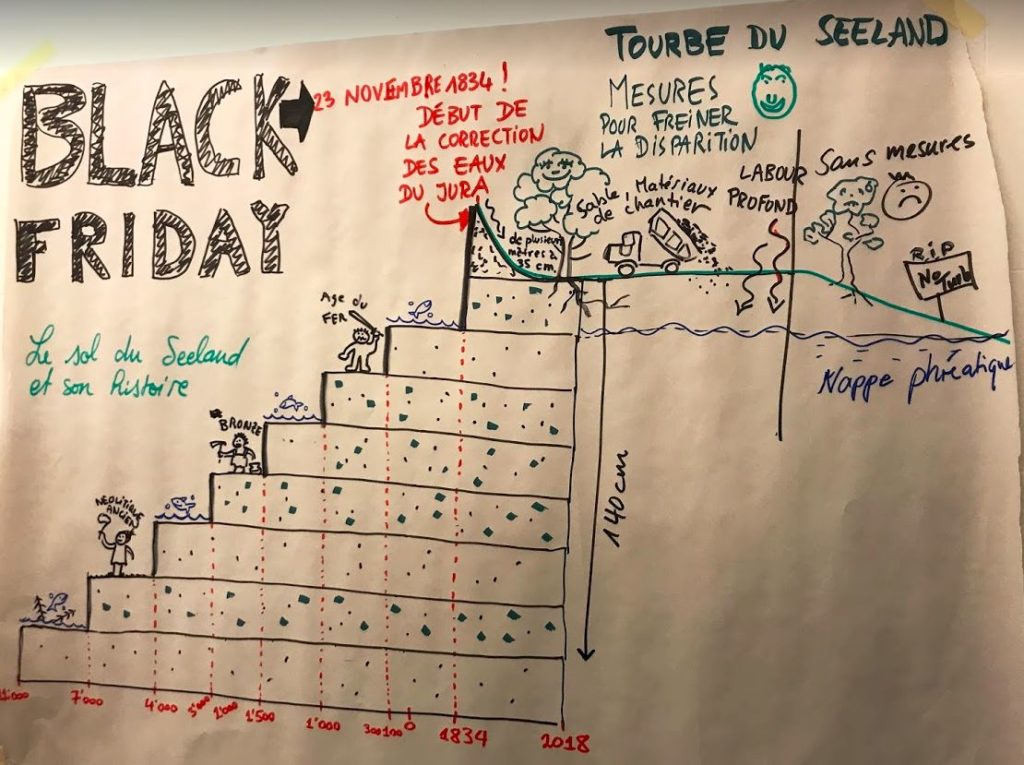 BLACK
FRIDAY
Le sol du Seeland
et son histoire
23 NOVEMBRE 1834 !
DÉBUT DE
LA CORRECTION
DES EAUX
DU JURA
TOURBE DU SEELAND
MESURES
POUR FREINER
LA DISPARITION
Sable, Matériaux
de chantier
LABOUR
PROFOND
Sans mesures
RIP
No
Turb
de plusieurs
mètres à
35 cm.
Nappe phréatique
Age du
FER
BRONZE
NEOLITIQUE
ANCIEN
140 cm
7'000
4'000
1'500
1'000
300
100
0
1834
2018